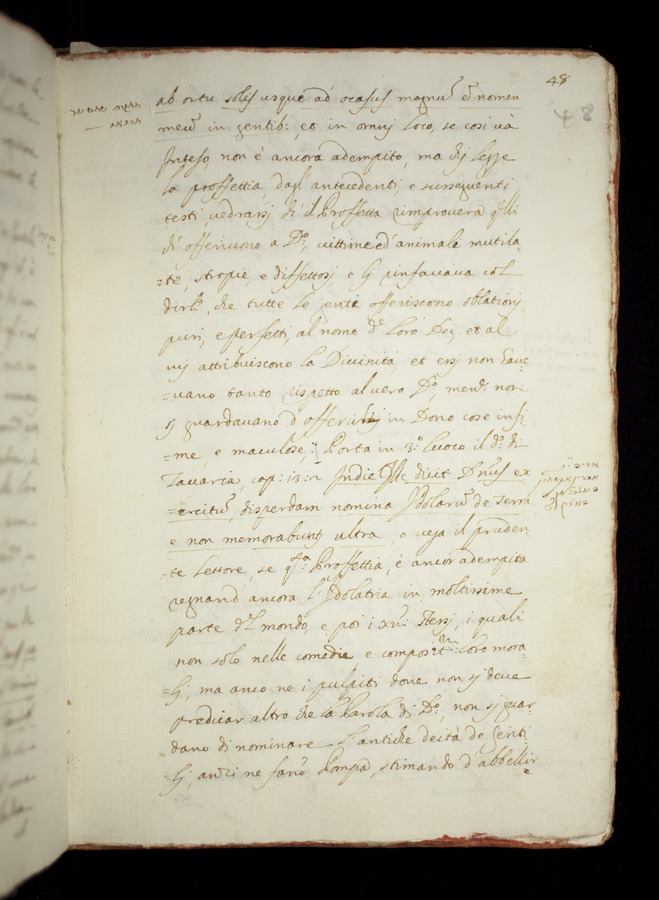 48
48
ab ortu solis usque ad ocasus magnũ ẽ nomen
meũ in gentib: et in omnj loco, se così và
Inteso, non è ancora adempito, ma chj legge
la proffettia, dagl'antecedenti, e susseguenti
testi, vedrassj chè il Proffetta rimprovera q̃lli
chè offerivono a D.º, vittime ed'animale mutila-
=te, stropie, e diffettosj, e
dirlj, che tutte le gente offeriscono oblationj
puri, e perfetti, al nome de loro Dei, et al
attribuiscono la Divinità, et essj non have-
=vano tanto rispetto al vero D.º, non
sj guardavano d'offerirlj in Dono cose infi-
=me, e maculose; Porta in 3.º luoco il d.º di
Zaccaria, cap: 13: Indie Illa dicit Dñus ex
=ercituũ, disperdam nomina Idolarũ de terra
e non memorabuntj ultra, o veja il pruden-
=te lettore, se q.ª Proffettia, è ancor adempita
regnand ancora l'Idolatria in moltissime
parte del mondo, e poi i Stessj, i quali
non solo nelle comedie e loro mora-
=lj, ma anco ne i pulpiti dove non sj deve
predicar altro che la Parola di D.º, non sj guar
dano di nominare l'antiche deità de Genti
=lj, anzi ne fanõ Pompa, stimando d'abbellir
e